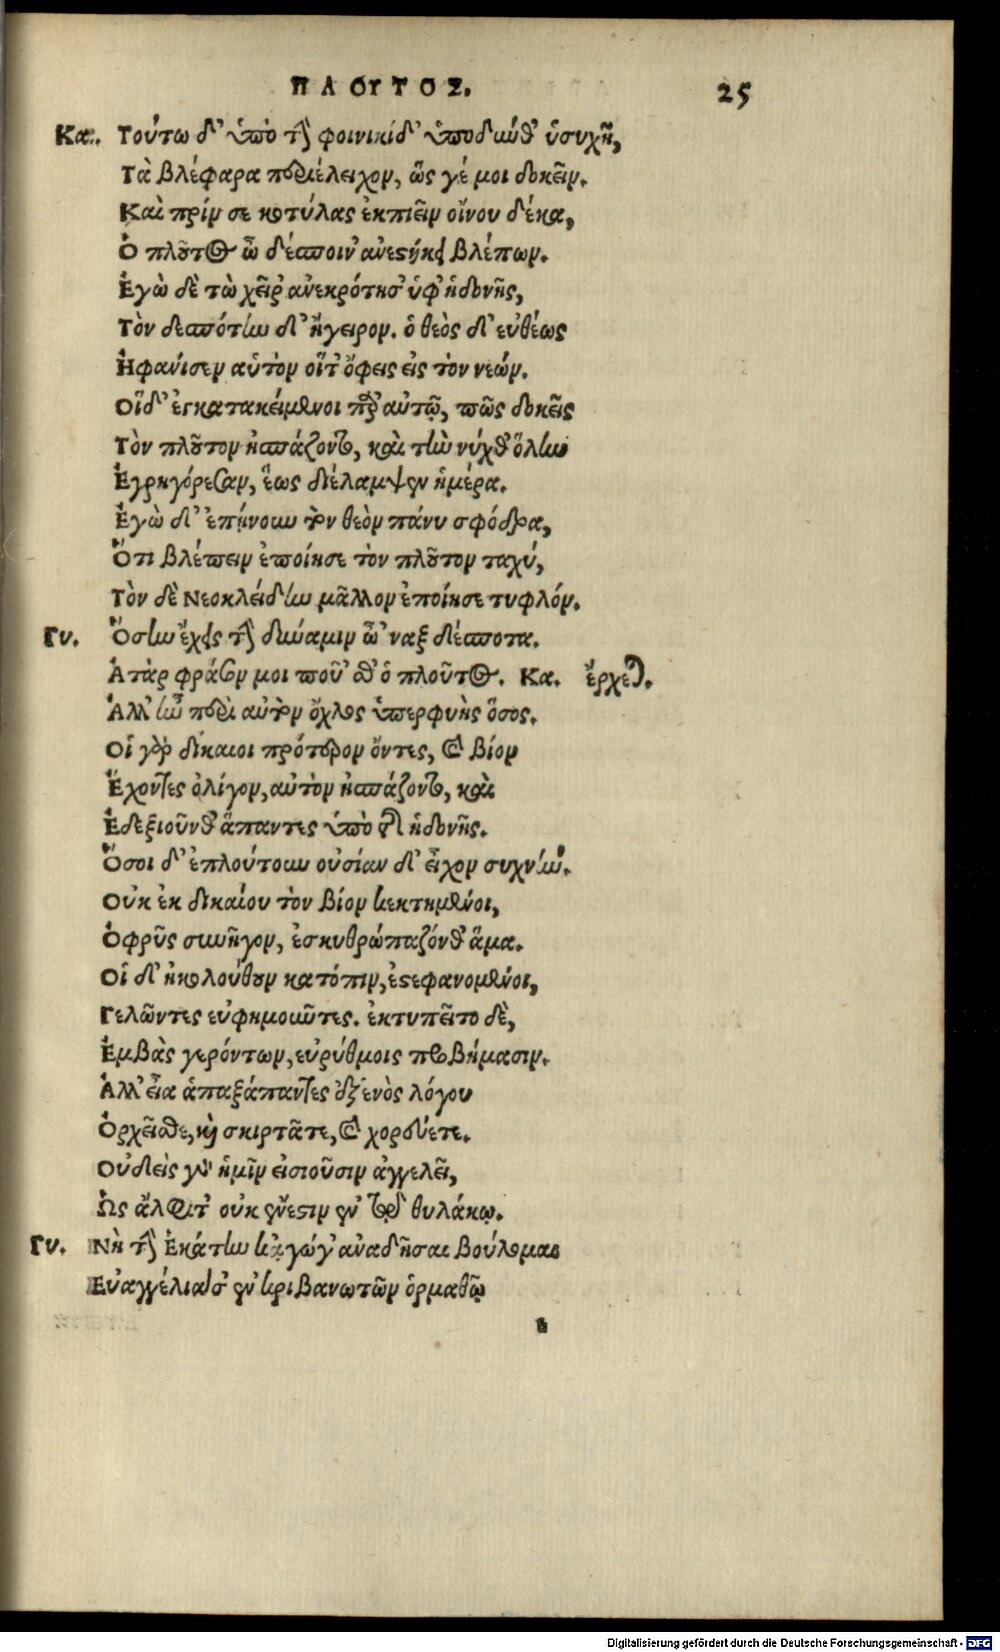 ΠΛΟΥΤΟΣ. 25
Κα. Τούτω δ' ὑπὸ τὴν φοινικίδ' ὑποδύνθ' ἡσυχῆ,
Τὰ βλέφαρα περιέλειχον, ὥς γέ μοι δοκεῖν.
Καὶ πρίν σε κοτύλας ἐκπιεῖν οἴνου δέκα,
Ὁ πλοῦτος ὦ δέσποιν' ἀνεστήκει βλέπων.
Ἐγὼ δὲ τὼ χεῖρ' ἀνεκρότησ' ὑφ' ἡδονῆς,
Τὸν δεσπότην δ' ἤγειρον. ὁ θεὸς δ' εὐθέως
Ἠφάνισεν αὑτὸν οἵ τ' ὄφεις εἰς τὸν νεών.
Οἵ δ' ἐγκατακείμενοι παρ' αὐτῷ, πῶς δοκεῖς
Τὸν πλοῦτον ἠσπάζοντο, καὶ τὴν νύχθ' ὅλην
Ἐγρηγόρεσαν, ἕως διέλαμψεν ἡμέρα.
Ἐγὼ δ' ἐπῄνουν τὸν θεὸν πάνυ σφόδρα,
Ὅτι βλέπειν ἐποίησε τὸν πλοῦτον ταχύ,
Τὸν δὲ Νεοκλείδην μᾶλλον ἐποίησε τυφλόν.
Γυ. Ὅσην ἔχεις τὴν δύναμιν ὦ 'ναξ δέσποτα.
Ἀτὰρ φράσον μοι ποῦ 'σθ' ὁ πλοῦτος. Κα. ἔρχεται.
Ἀλλ' ἦν περὶ αὐτὸν ὄχλος ὑπερφυὴς ὅσος.
Οἱ γὰρ δίκαιοι πρότερον ὄντες, καὶ βίον
Ἔχοντες ὀλίγον, αὐτὸν ἠσπάζοντο, καὶ
Ἐδεξιοῦνθ' ἅπαντες ὑπὸ τῆς ἡδονῆς.
Ὅσοι δ' ἐπλούτουν οὐσίαν δ' εἶχον συχνὴν.
Οὐκ ἐκ δικαίου τὸν βίον κεκτημένοι,
Ὀφρῦς συνῆγον, ἐσκυθρώπαζόνθ' ἅμα.
Οἱ δ' ἠκολούθουν κατόπιν, ἐστεφανομένοι,
Γελῶντες εὐφημοῦντες. ἐκτυπεῖτο δὲ,
Ἐμβὰς γερόντων, εὐρύθμοις προβήμασιν.
Ἀλλ' εἶα ἁπαξάπαντες ἐξ ἑνὸς λόγου
Ὀρχεῖσθε, καὶ σκιρτᾶτε, καὶ χορεύετε.
Οὐδεὶς γὰρ ἡμῖν εἰσιοῦσιν ἀγγελεῖ,
Ὡς ἄλφιτ' οὐκ ἔνεστιν ἐν τῷ θυλάκῳ.
Γυ. Νὴ τὴν Ἑκάτην κἀγώγ' ἀναδῆσαι βούλομαι
Εὐαγγέλιά σ' ἐν κριβανωτῶν ὁρμαθῷ
Digitalisierung gefördert durch die Deutsche Forschungsgemeinschaft - DFG